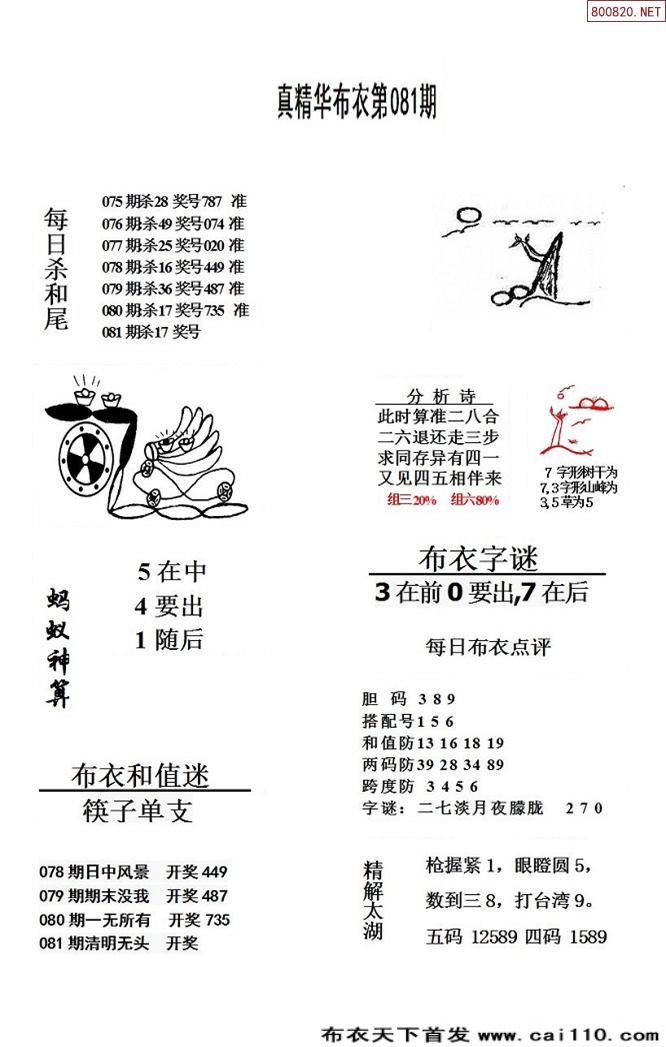 800820.NET
真精华布衣第081期
每日杀和尾
075期杀28 奖号787 准
076期杀49奖号074准
077期杀25奖号020准
078期杀16奖号449准
079期杀36奖号487准
080期杀17奖号735 准
081期杀17奖号
分析诗
此时算准二八合
二六退还走三步
求同存异有四一
又见四五相伴来
组三20% 组六80%
7字形树干为
7,3字形山峰为
3,5草为5
蚂蚁神算
5在中
4要出
1随后
布衣字谜
3在前0要出,7在后
每日布衣点评
胆 码 3 8 9
搭配号1 5 6
和值防13 16 18 19
两码防39 28 34 89
跨度防 3 4 5 6
字谜：二七淡月夜朦胧 2 7 0
布衣和值迷
筷子单支
078期日中风景 开奖449
079期期末没我 开奖487
080期一无所有 开奖735
081期清明无头 开奖
精解太湖
枪握紧1，眼瞪圆5，
数到三8，打台湾9。
五码 12589 四码 1589
布衣天下首发 www.cai110.com